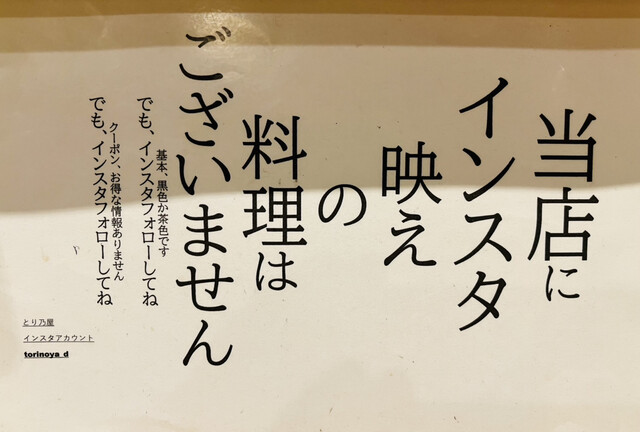 当店に
インスタ
映え
の
料理は
ございません
基本、黒色か茶色です
でも、インスタフォローしてね
クーポン、お得な情報ありません
でも、インスタフォローしてね
とり乃屋
インスタアカウント
torinoya_d